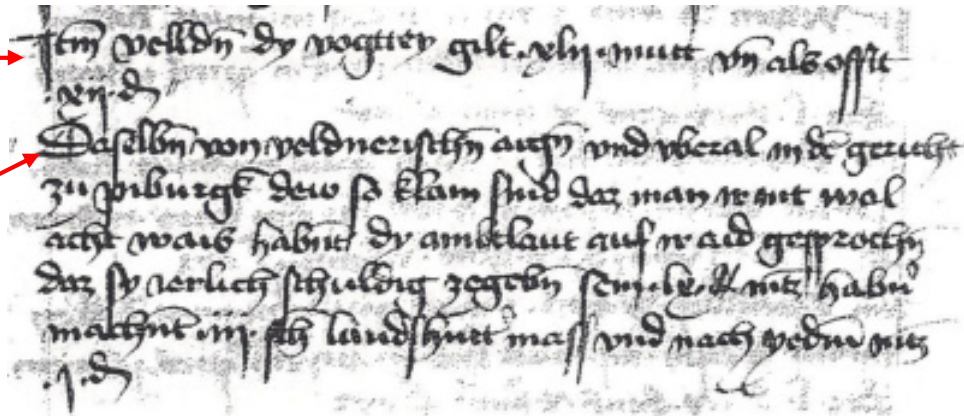 Itm velldn dy vogttey gilt .xlii. mutt vn als offt
.xii. d
Daselbn von veldnerischn aign vnd vberal in de gericht
zu piburgk dew so klain sind daz man ir nit wol
acht wais habnt dy ambtlaut auf ir aid gesprochn
daz sy ierlich schuldig zegebn sein .lx. mtz habn
machnt .iii. sch landshuet mass vnd nach yedm mtz
.i. d